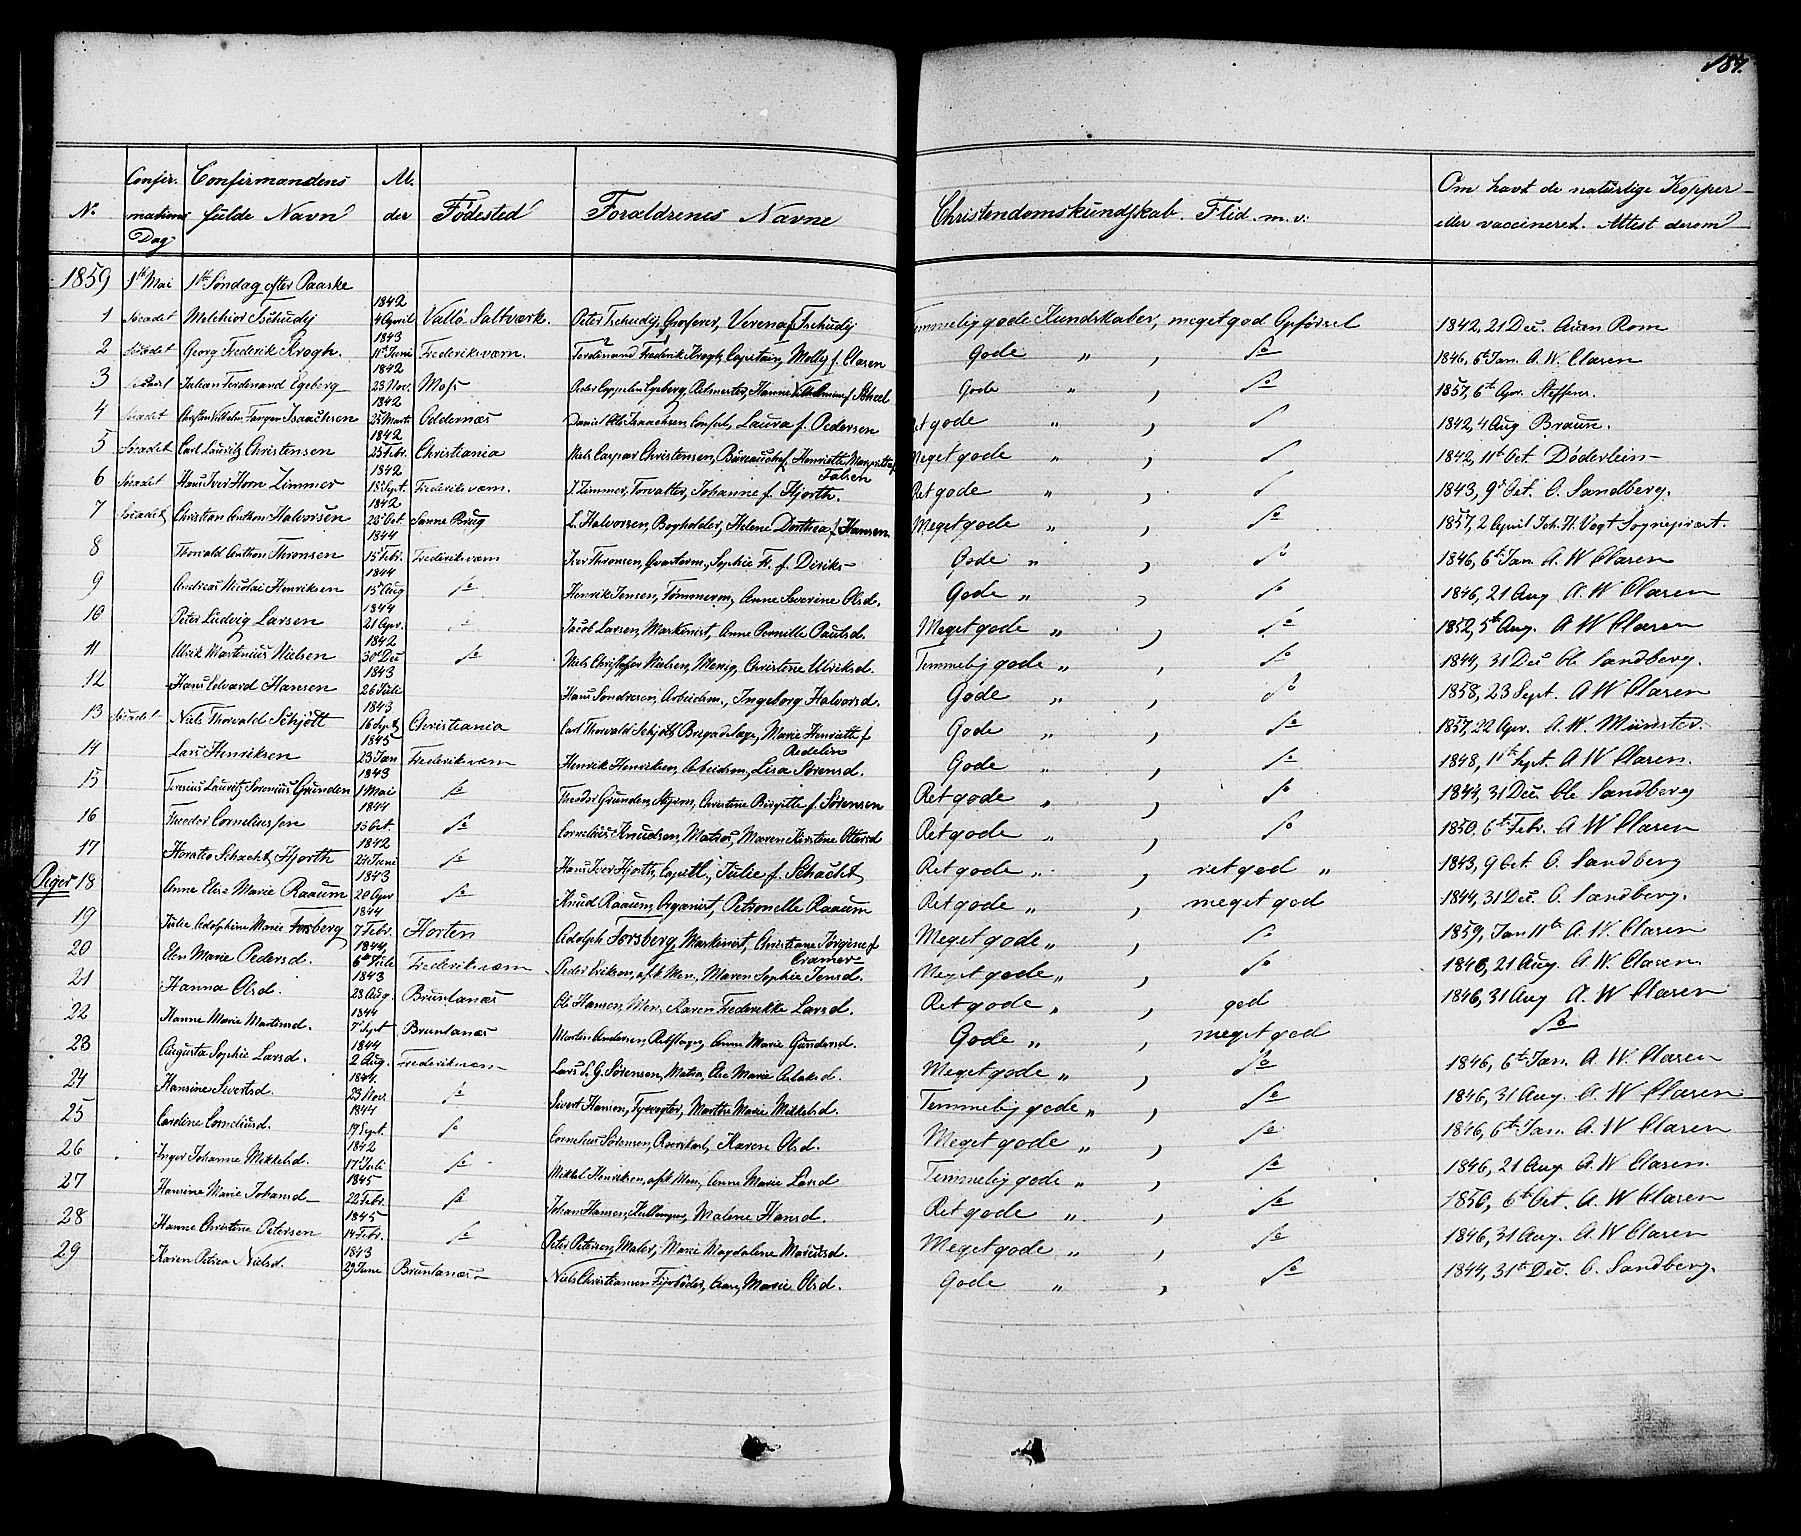 187.
No Confirmations Dag Confirmandens fulde Navn Alder Fødested Forældrenes Navne Christendomskundskab. Flid. m. v: Om havt de naturlige Kopper eller vaccineret. Attest derom
1859 1ste Mai 1ste Søndag efter Paaske
1 Søcadet Melchior Tschudy 1842 4 April Vallø Saltværk. Peter Tschudy, Verena f Tschudy Temmelig gode Kundskaber, meget god Opførsel 1842, 21 Dec. Rom
2 Søcadet Georg Frederik Krogh. 1843 11te Juni Frederiksværn. Ferdinand Frederik Krogh, Capitain, Molly f. Claren Gode " , do 1846, 6te Jan. A. W. Claren
3 Julian Ferdinand Egeberg 1842 23 Nov. Moss Peder Cappelen Egeberg, Hanne Vilhelmine f Scheel Gode " , do 1857, 6te Apr. Steffens.
4 Søcadet Isaachsen 1842 25 Marts Oddernæs Daniel Otto Isaachsen Consul, Laura f. Pedersen Ret gode " , do 1842, 4 Aug Braun.
5 Søcadet Carl Lauritz Christensen 1842 25 Febr. Christiania Niels Caspar Christensen, Bureauchef, Henriette Margrethe f Falsen Meget gode " , do 1842, 11te Oct. Døderlein
6 Søcadet Hans Iver Horn Zimmer 1842 18 Sept. Frederiksværn. J. Zimmer, Forvalter, Johanne f. Hjorth. Ret gode " , do 1843, 9de Oct. O. Sandberg.
7 Søcadet Christian Anthon Halvorsen 1842 28 Oct Sanne Brug L. Halvorsen Bogholder, Helene Dorthea f. Hansen Meget gode " , do 1857, 2 April Joh. H. Vogt Sognepræst.
8 Thorvald Anthon Thronsen 1844 15 Febr. Frederiksværn Iver Thronsen, Qvarterm., Sophie H. f. Diriks Gode " , do 1846, 6te Jan. A. W Claren
9 Andreas Nicolai Henriksen 1844 15 Aug do Henrik Jensen, Tømmerm, Anne Severine Olsd. Gode " , do 1846, 21 Aug A. W Claren
10 Peter Ludvig Larsen 1844 21 Apr. do Jacob Larsen, Maskinist, Anne Pernille Paulsd. Meget gode " , do 1852, 5te Aug. A W Claren
11 Ulrik Martinius Nielsen 1842 30 Dec do Niels Christoffer Nielsen, Menig, Christine Ulriksd. Temmelig gode " , do 1844, 31 Dec Ole Sandberg.
12 Hans Edvard Hansen 1843 26 Juli Hans Sondresen, Arbeidsm., Ingeborg Halvorsd. Gode " , do 1858, 23 Sept. A W Claren
13 Søcadet Niels Thorvald Schjøtt 1843 16 Sept Christiania Carl Thorvald Schjøtt Brigadelæge, Marie Henriette f Gode " , do 1857, 22 Apr. A. W. Münster.
14 Lars Henriksen 1845 23 Jan Frederiksværn Henrik Henriksen, Arbeidsm, Lisa Sørensd. Gode " , do 1848, 11te Sept. A W Claren.
15 Lauritz Sørenius Grunden 1843 1 Mai do Theodor Grunden, Styrm, Christine Birgitte f. Sørensen Ret gode " , do 1844, 31 Dec. Ole Sandberg
16 Theodor Corneliussen 1844 13 Oct. do Cornelius Knudsen, Matros, Maren Kirstine Ottersd Ret gode " , do 1850, 6te Febr. A W Claren
17 Horatio Schacht Hjorth 1842 24 Juni do Hans Iver Hjorth, Capitl., Julie f. Schacht Ret gode " , ret god " 1843, 9 Oct. O. Sandberg
Piger 18 Anne Elise Marie Raaum 1843 20 Apr do Knud Raaum, Organist, Petronelle Raaum Ret gode " , meget god 1844, 31 Dec. O. Sandberg.
19 Julie Adolphine Marie Forsberg 1844 7 Febr. Horten Adolph Forsberg, Maskinist, Christiane Jørgine f Cramer Meget gode " , do 1859, Jan 11te A. W. Claren
20 Elen Marie Pedersd. 1844 6te Juli Frederiksværn Peder Eriksen, afsk Men., Maren Sophie Jensd. Meget gode " , do 1846, 21 Aug. A. W. Claren.
21 Hanna Olsd. 1843 28 Aug. Brunlanæs Ole Hansen, Men, Karen Frederikke Larsd. Ret gode " , god 1846, 31 Aug A. W Claren
22 Hanne Marie Martinsd. 1844 7 Sept Brunlanæs Martin Andersen, Anne Marie Gundersd. Gode " , meget god do
23 Augusta Sophie Larsd. 1844 2 Aug. Frederiksværn Lars S. G. Sørensen, Matros, Else Marie Aslaksd. Meget gode " , do 1846, 6te Jan. A. W. Claren
24 Hansine Sivertsd. 1844 23 Nov. do Sivert Hansen, Fyrvogter, Marthe Marie Mikkelsd. Temmelig gode " , do 1846, 31 Aug. A. W Claren
25 Caroline Corneliusd. 1844 19 Sept. do Cornelius Sørensen, Karen Olsd. Meget gode " , do 1846, 6te Jan. A. W Claren
26 Inger Johanne Mikkelsd. 1842 17 Juli do Mikkel Henriksen, afsk Men, Anne Marie Larsd Temmelig gode " , do 1846, 21 Aug. A. W Claren.
27 Hansine Marie Johansd 1845 22 Febr. do Johan Hansen, Malene Hansd. Ret gode " , do 1850, 6te Oct. A. W Claren
28 Hanne Christine Petersen 1845 14 Febr. do Peter Petersen, Maler, Marie Magdalene Mariusd. Meget gode " , do 1846, 31 Aug. A. W Claren
29 Karen Petrea Nielsd. 1843 29 June Brunlanæs Niels Christiansen Fyrbøder, Marie Olsd. Gode " , do 1844, 31te Dec. O. Sandberg.